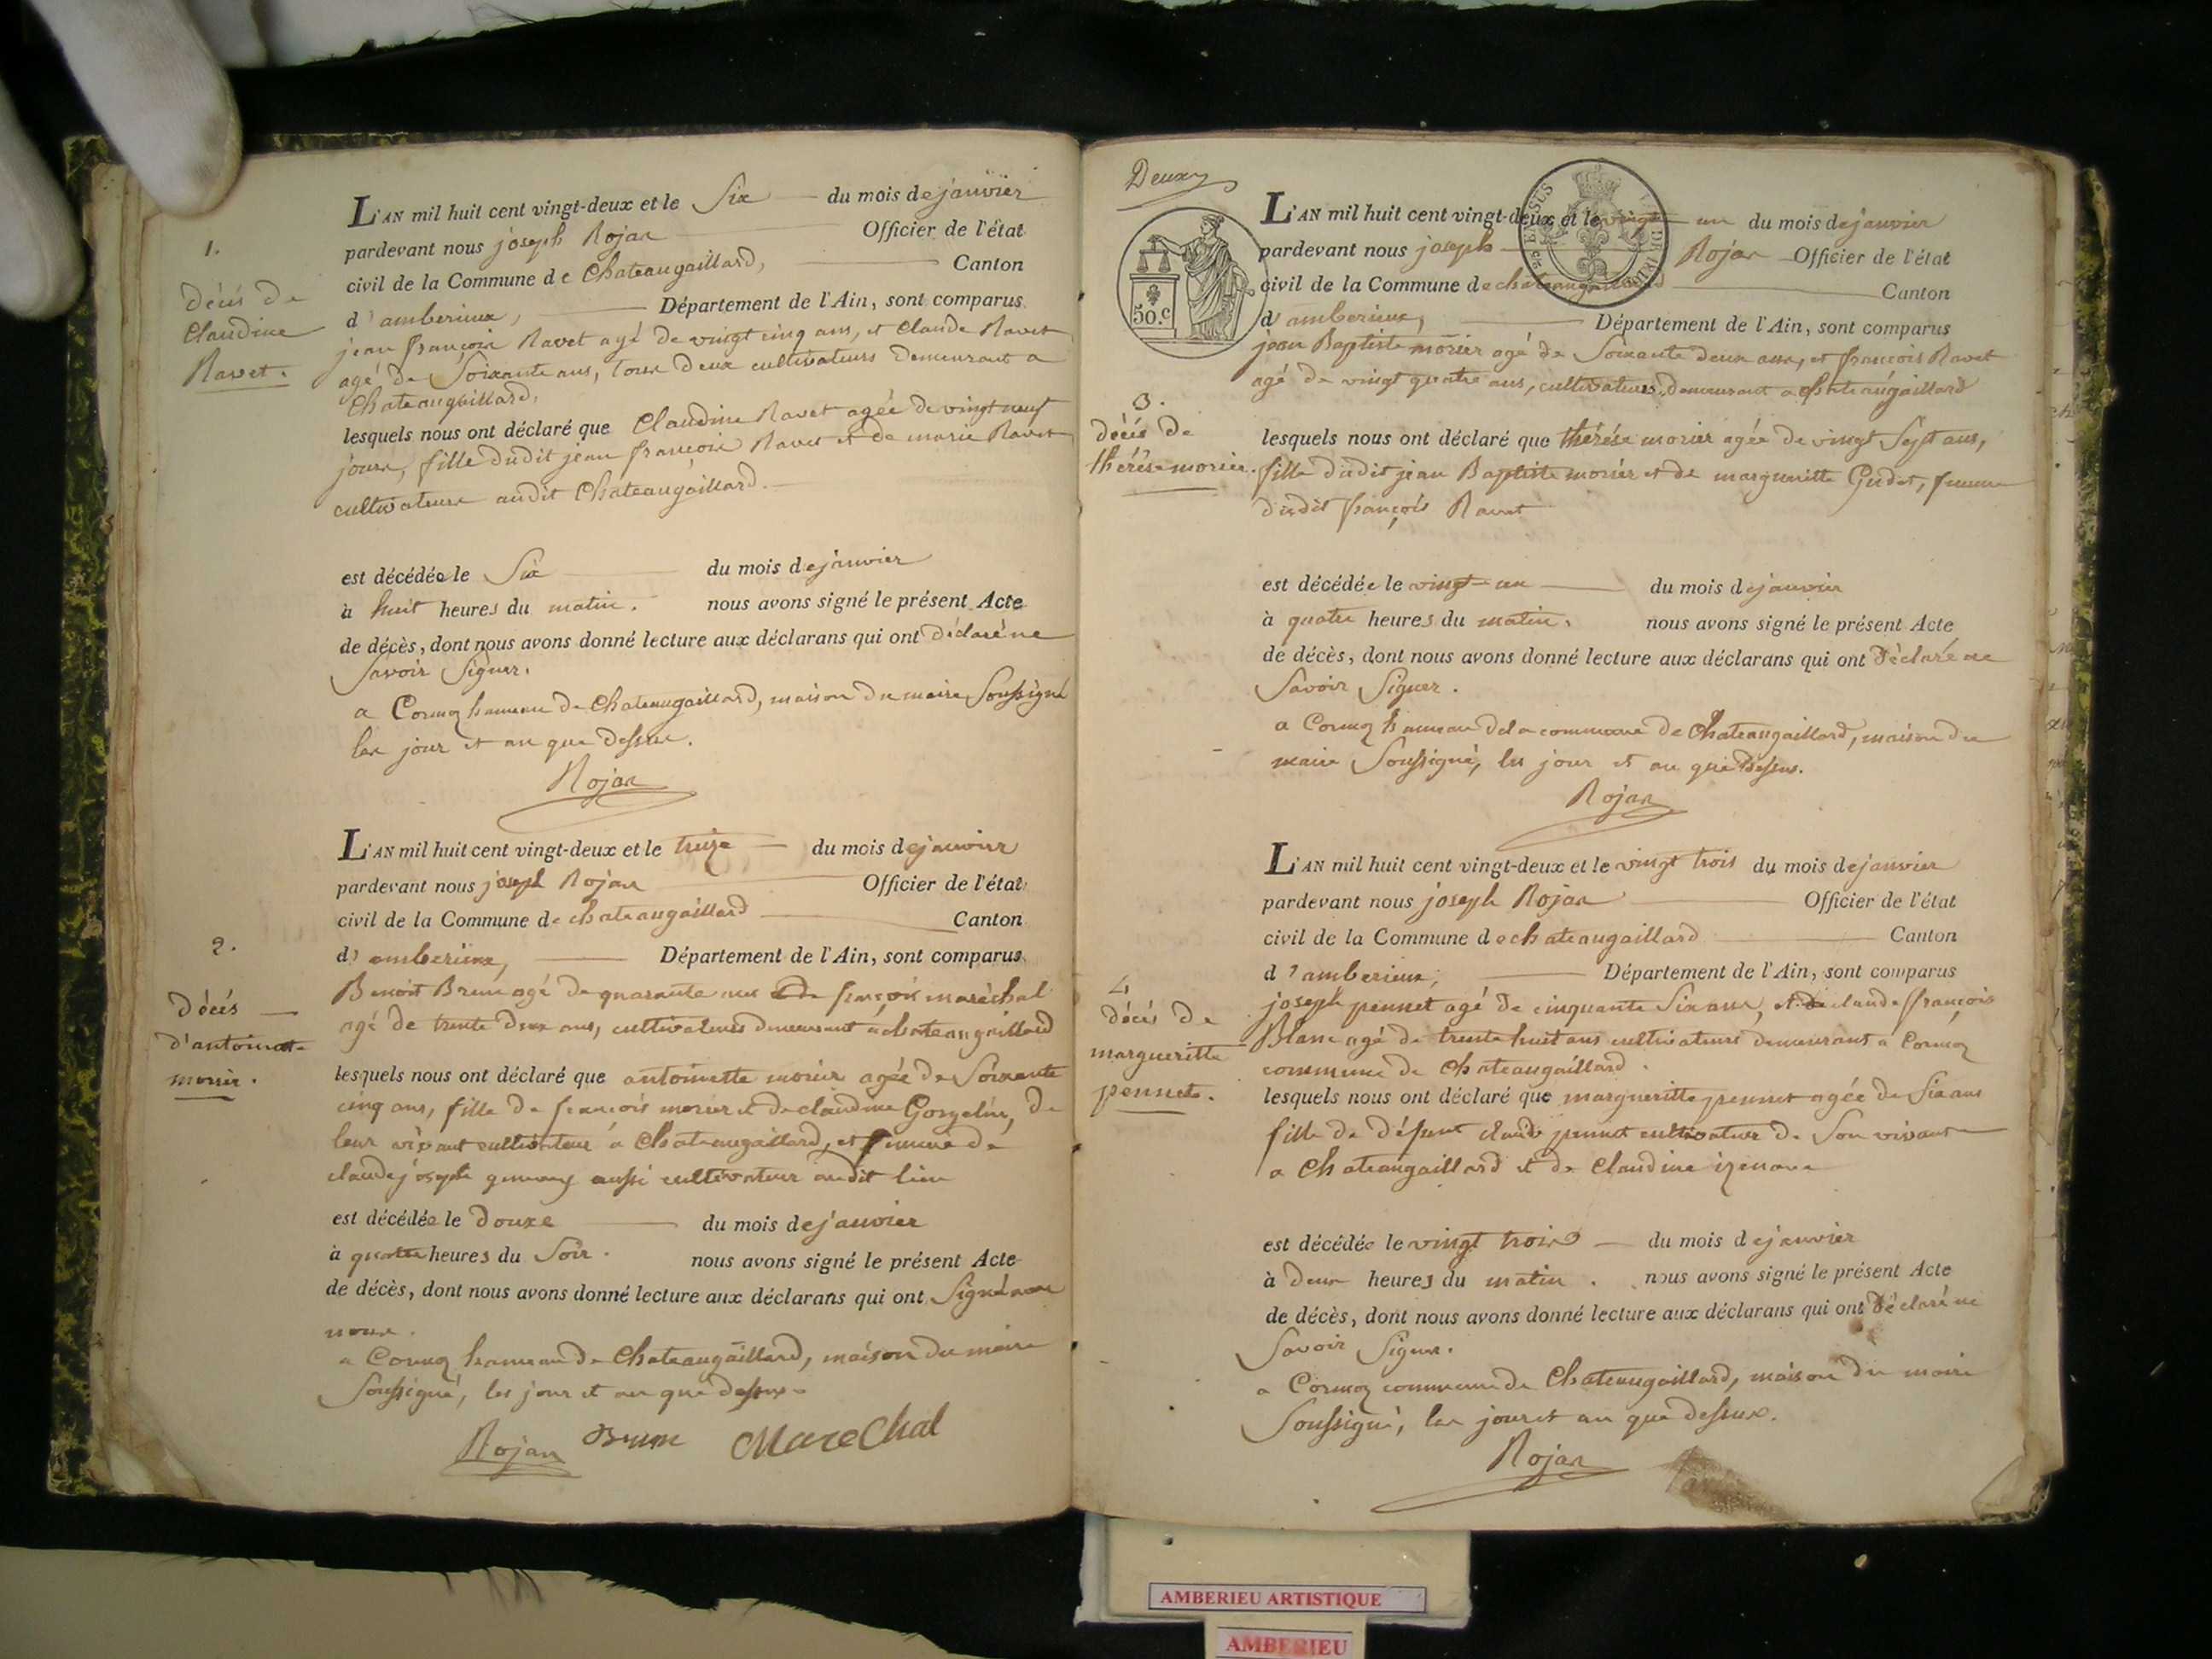 1.
décés de
Claudine
Ravet.
L'AN mil huit cent vingt-deux et le Six du mois de janvier
pardevant nous joseph Rojas Officier de l'état
civil de la Commune de Chateaugaillard, Canton
d'amberieux, Département de l'Ain, sont comparus
jean françois Ravet agé de vingt cinq ans, et Claude Ravet
agé de Soixante ans, tous deux cultivateurs demeurant a
Chateaugaillard,
lesquels nous ont déclaré que Claudine Ravet agée de vingt neuf
jours, fille dudit jean françois Ravet et de marie Ravet
cultivateurs audit Chateaugaillard.
est décédée le Six du mois de janvier
à huit heures du matin. nous avons signé le présent Acte
de décès, dont nous avons donné lecture aux déclarans qui ont déclaré ne
Savoir Signer.
a Cormoz hameau de Chateaugaillard, maison du maire Soussigné
les jour et an que dessus.
Rojas
2.
décés
d'antoinette
morier.
L'AN mil huit cent vingt-deux et le treize du mois de janvier
pardevant nous joseph Rojas Officier de l'état
civil de la Commune de chateaugaillard Canton
d'amberieux, Département de l'Ain, sont comparus
Benoit Brun agé de quarante ans de françois maréchal
agé de trente deux ans, cultivateurs demeurant a chateaugaillard
lesquels nous ont déclaré que antoinette morier agée de Soixante
cinq ans, fille de françois morier et de claudine Gozgelin, de
leur vivant cultivateurs a Chateaugaillard, et femme de
claude joseph aussi cultivateur audit lieu
est décédée le douze du mois de janvier
à quatre heures du Soir. nous avons signé le présent Acte
de décès, dont nous avons donné lecture aux déclarans qui ont Signé avec
nous.
a Cormoz hameau de Chateaugaillard, maison du maire
Soussigné, les jour et an que dessus.
Rojas Brun MareChal
Deux
50.c
3.
décés de
thérése morier.
L'AN mil huit cent vingt-deux et le vingt un du mois de janvier
pardevant nous joseph Rojas Officier de l'état
civil de la Commune de chateaugaillard Canton
d'amberieux, Département de l'Ain, sont comparus
jean Baptiste morier agé de Soixante deux ans, et francois Ravet
agé de vingt quatre ans, cultivateurs demeurant a Chateaugaillard
lesquels nous ont déclaré que thérése morier agée de vingt Sept ans,
fille dudit jean Baptiste morier et de margueritte Gudet, femme
dudit françois Ravet
est décédée le vingt-un du mois de janvier
à quatre heures du matin. nous avons signé le présent Acte
de décès, dont nous avons donné lecture aux déclarans qui ont déclaré ne
Savoir Signer.
a Cormoz hameau de la commune de Chateaugaillard, maison du
maire Soussigné, les jour et an que dessus.
Rojas
4
décés de
margueritte
pennet.
L'AN mil huit cent vingt-deux et le vingt trois du mois de janvier
pardevant nous joseph Rojas Officier de l'état
civil de la Commune de chateaugaillard Canton
d'amberieux, Département de l'Ain, sont comparus
joseph pennet agé de cinquante Six ans, et de claude françois
Blanc agé de trente huit ans cultivateurs demeurant a Cormoz
commune de Chateaugaillard.
lesquels nous ont déclaré que margueritte pennet agée de Six ans
fille de défunt claude pennet cultivateur de Son vivant
a Chateaugaillard et de Claudine izenave
est décédée le vingt trois du mois de janvier
à deux heures du matin. nous avons signé le présent Acte
de décès, dont nous avons donné lecture aux déclarans qui ont déclaré ne
Savoir Signer.
a Cormoz commune de Chateaugaillard, maison du maire
Soussigné, les jour et an que dessus.
Rojas
AMBERIEU ARTISTIQUE
AMBERIEU